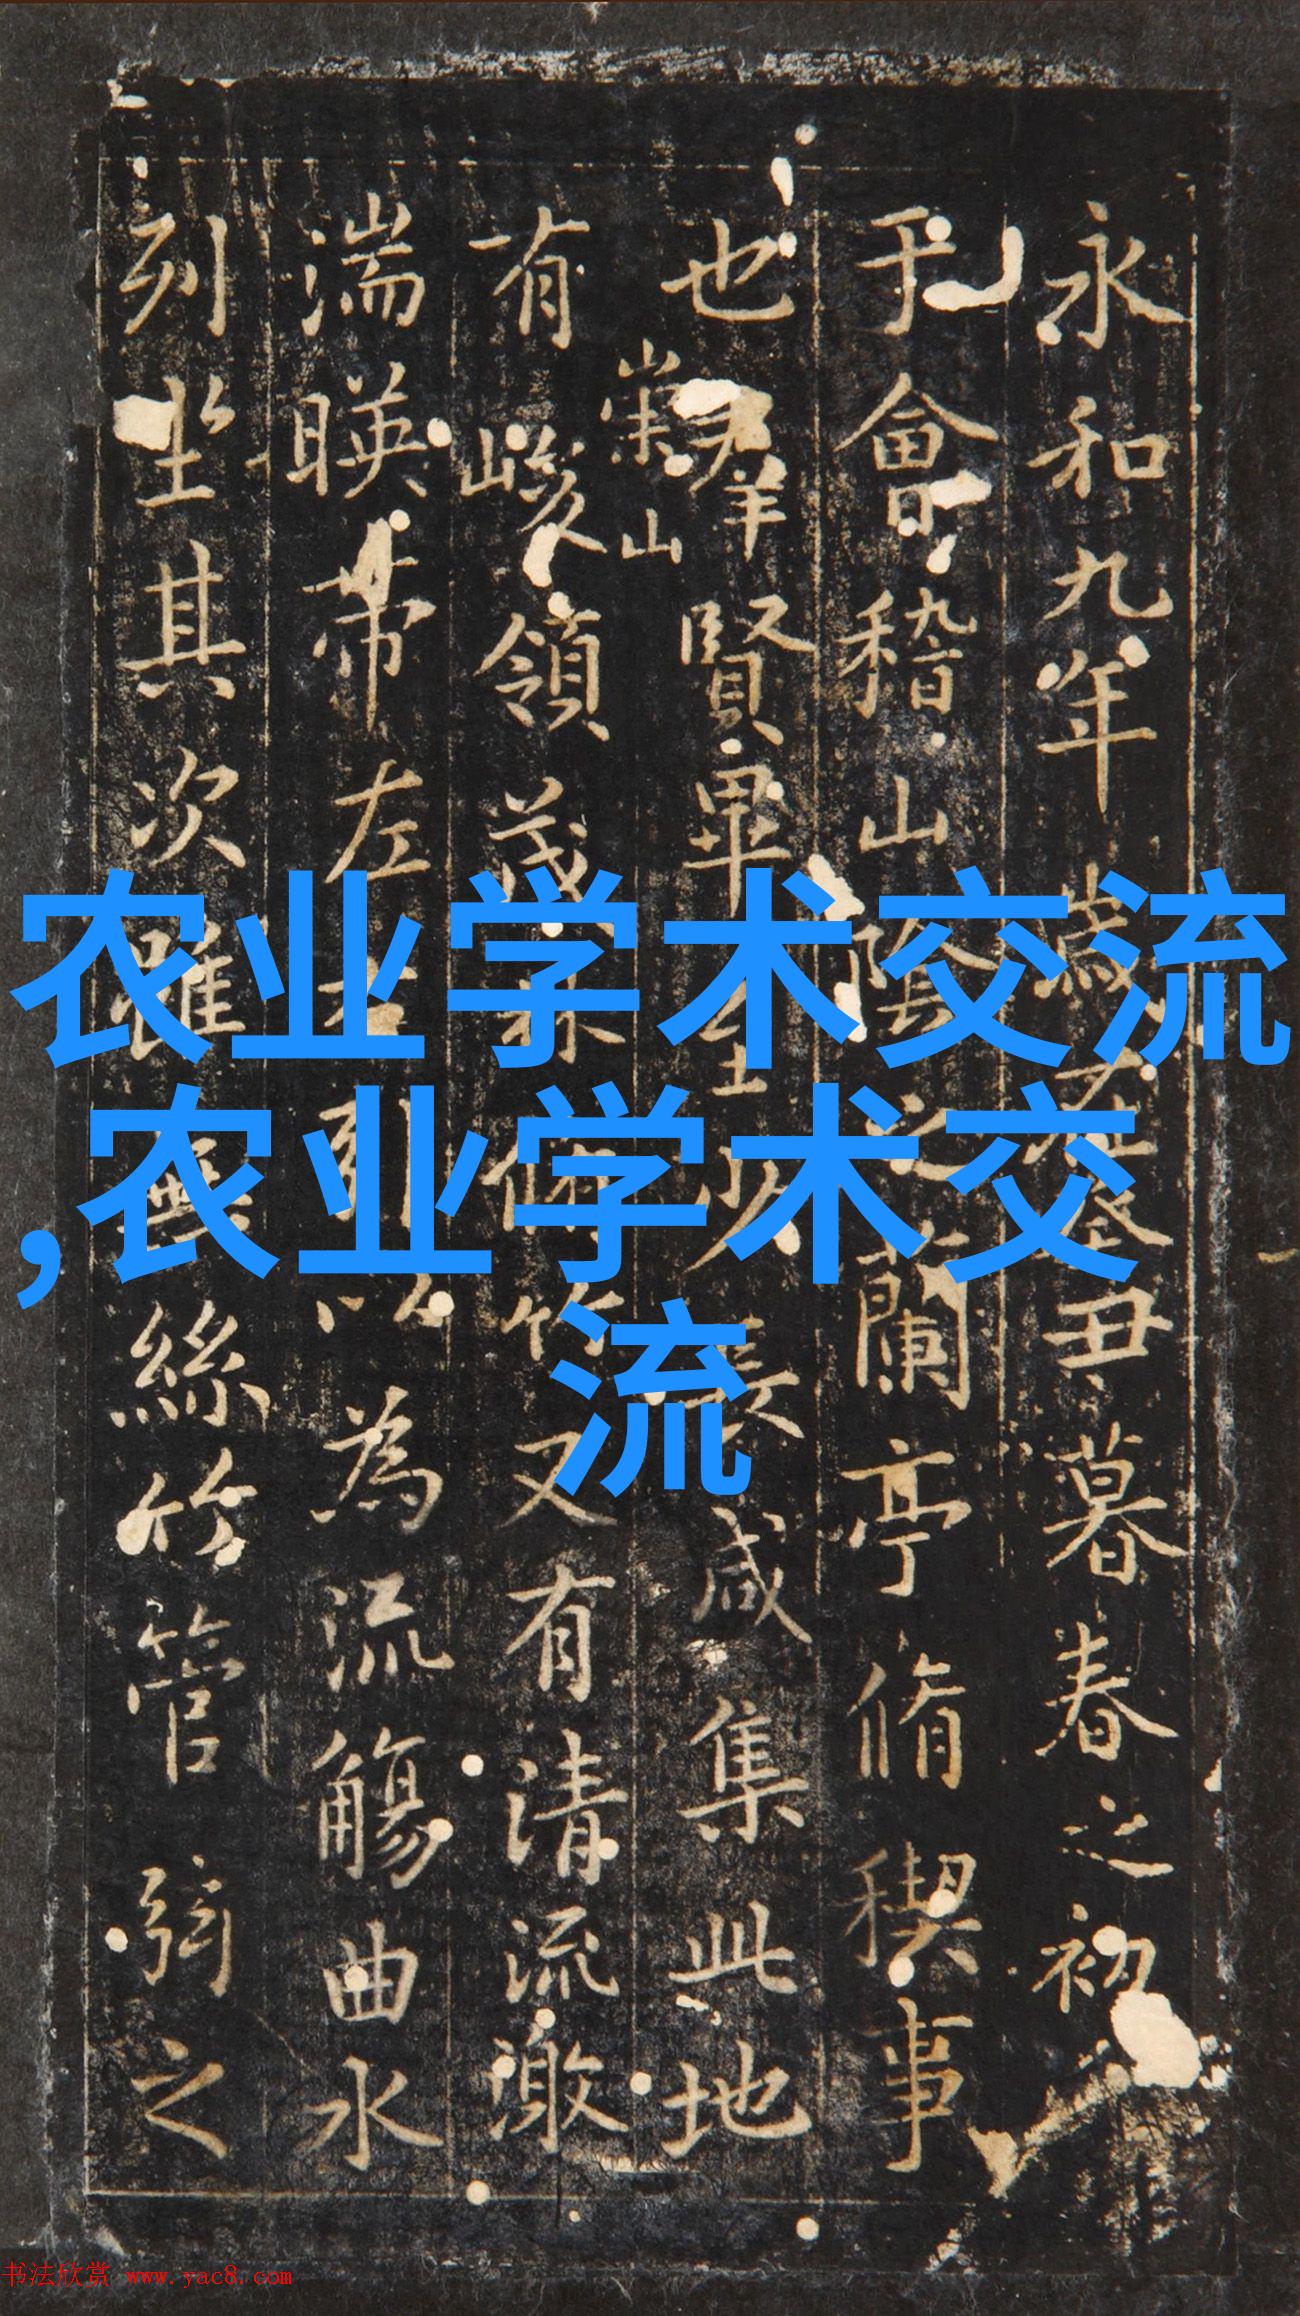 永和九年歲在癸丑暮春之初
于會稽山陰之蘭亭脩稧事
也群賢畢至少長咸集此地
崇山
有峻領茂林脩竹又有清流激
湍暎帶左右引以為流觴曲水
列坐其次雖無絲竹管弦之
农业学术交流
,农业学术交
流
书法欣赏 www.yac8.com